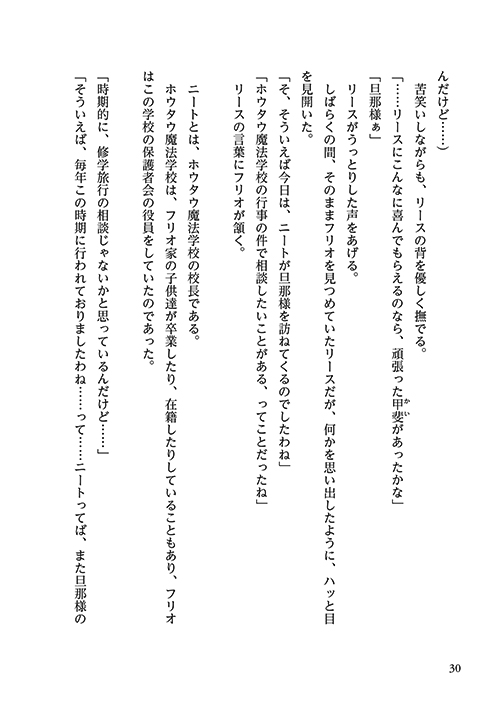 んだけど……)
　苦笑いしながらも、リースの背を優しく撫でる。
「……リースにこんなに喜んでもらえるのなら、頑張った甲斐があったかな」
かい
「旦那様ぁ」
　リースがうっとりした声をあげる。
　しばらくの間、そのままフリオを見つめていたリースだが、何かを思い出したように、ハッと目
を見開いた。
「そ、そういえば今日は、ニートが旦那様を訪ねてくるのでしたわね」
「ホウタウ魔法学校の行事の件で相談したいことがある、ってことだったね」
　リースの言葉にフリオが頷く。
　ニートとは、ホウタウ魔法学校の校長である。
　ホウタウ魔法学校は、フリオ家の子供達が卒業したり、在籍したりしていることもあり、フリオ
はこの学校の保護者会の役員をしていたのであった。
「時期的に、修学旅行の相談じゃないかと思っているんだけど……」
「そういえば、毎年この時期に行われておりましたわね……って……ニートってば、また旦那様の
30